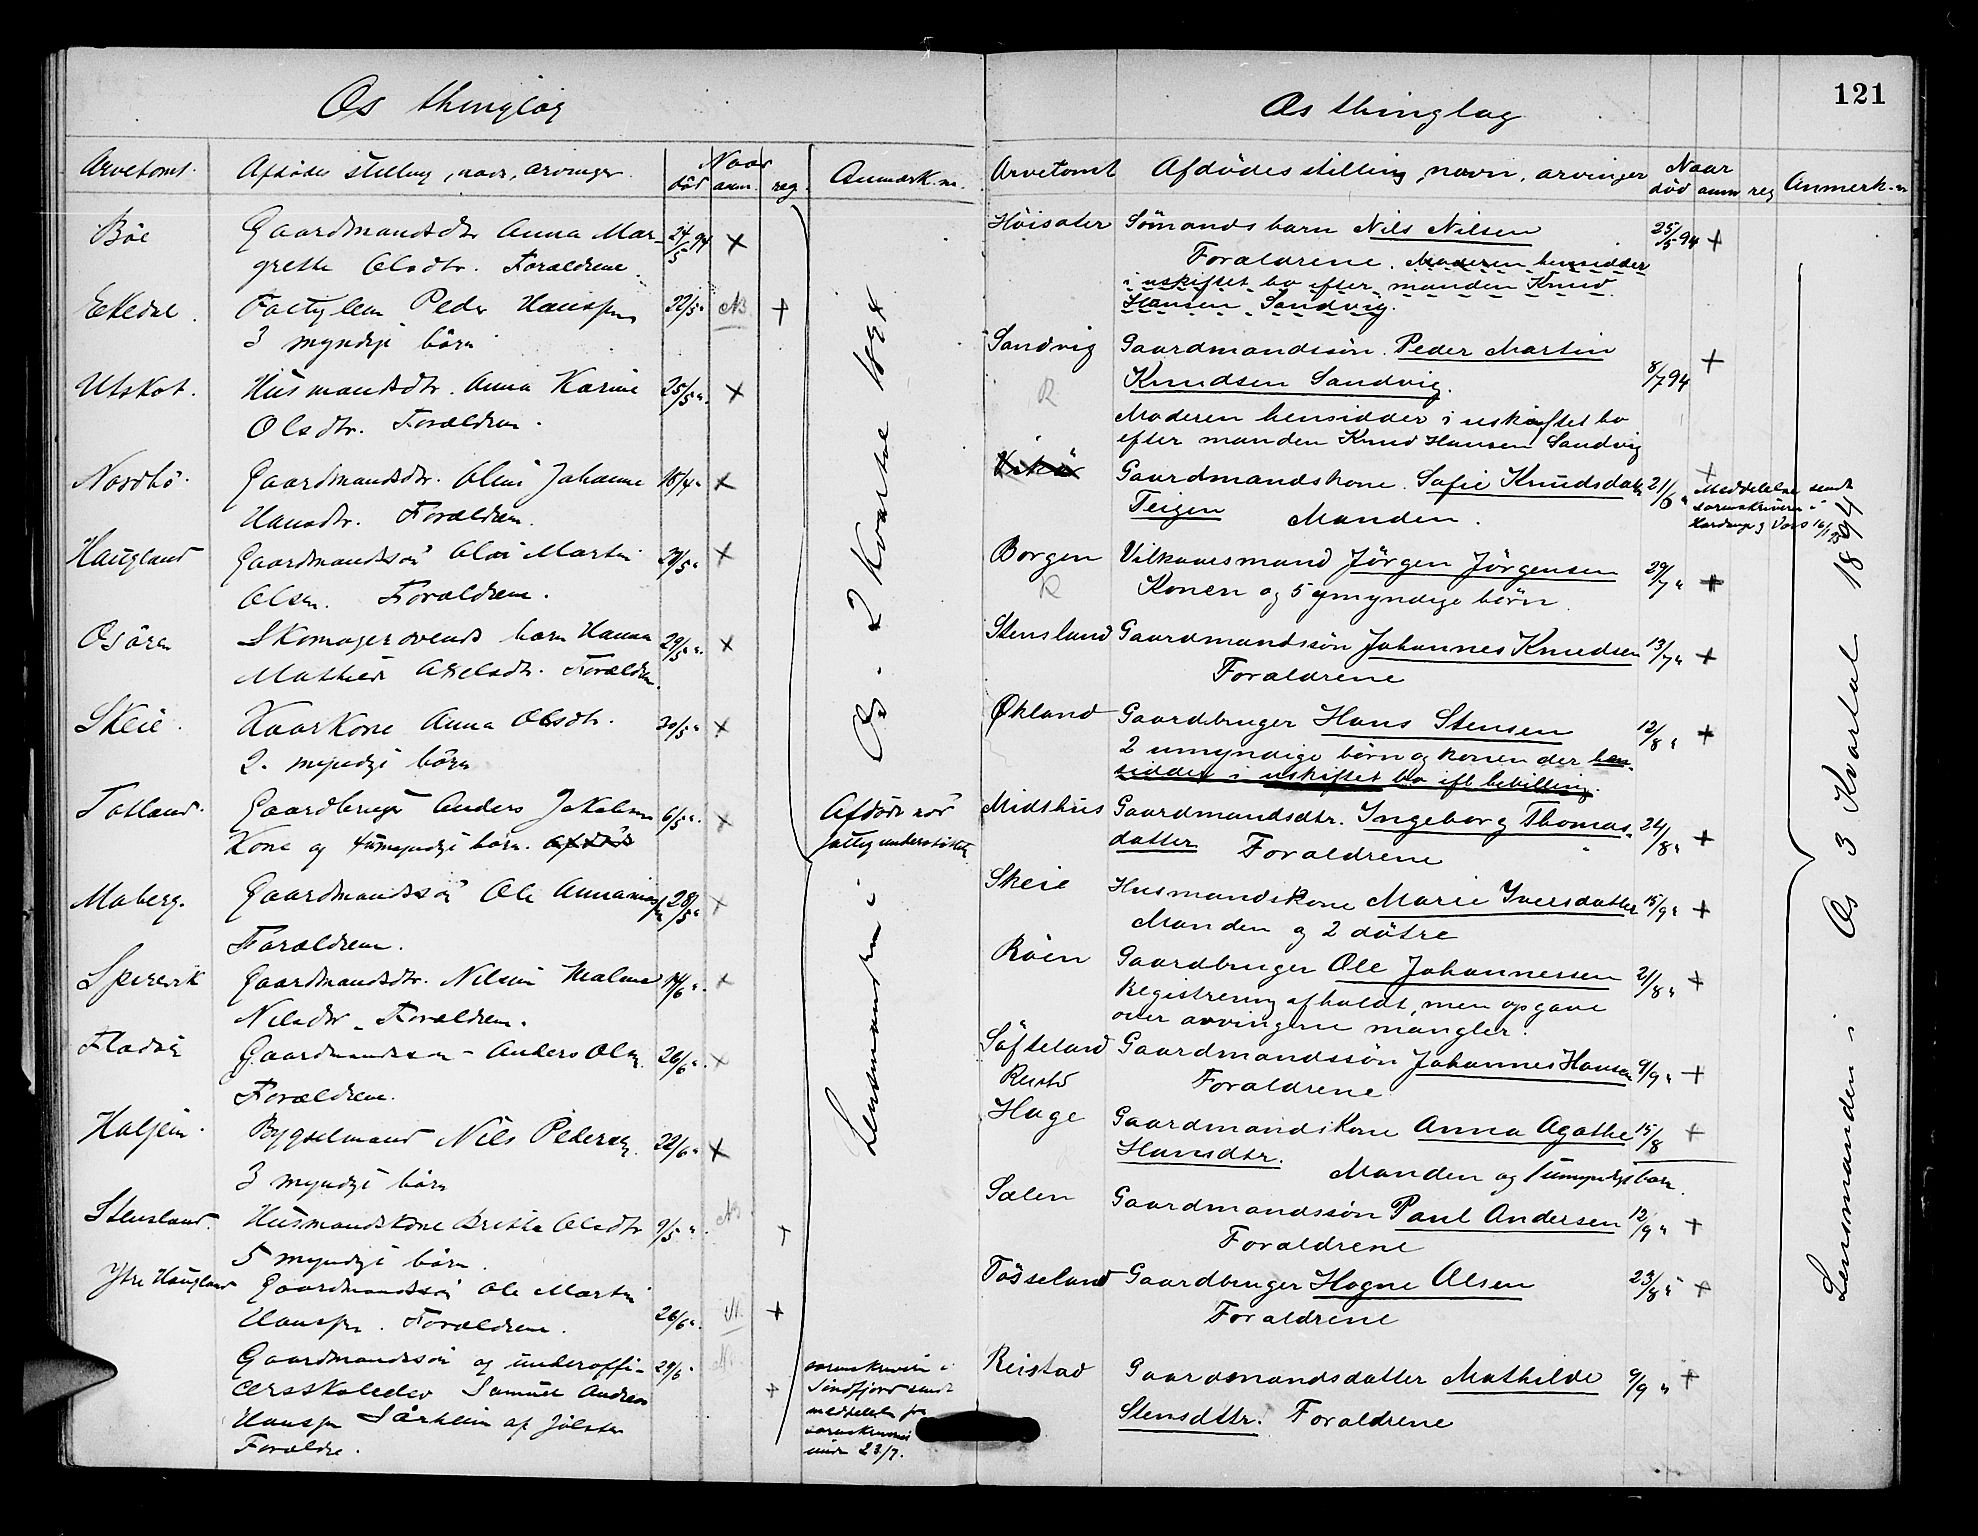 Os thinglag
Arvetomt. Afdødes stilling, navn, arvinger. Naar død anm. reg. Anmærk.
Bøe Gaardmandsdtr Anna Mar- 24/5 94 x
grethe Olsdtr. Forældrene
Ekedal. Peder Hanssen 22/5 " NB +
3 myndige børn
Utskot. Husmandsdtr. Anna Karine 25/5 ". x
Olsdtr. Forældren.
Nordbø. Gaardmandsdtr. Johanne 18/4 " x
Hansdtr. Forældren.
Haugland Gaardmandssøn Martin x
Olsen. Forældrene.
Osøren Skomagersvends barn Hanna 29/5 ". x
Axelsdtr. Forældren.
Skeie. Kaarkone Anna Olsdtr. 30/5 " x
2. myndige børn
Totland. Gaardbruger Anders Jakobsen 6/5 ". x Afdøde nød
Kone og 4 umyndige børn. fattigunderstøttet
Moberg. Gaardmandssøn Ole 28/5 " x
Forældren.
Spirevik Gaardmandsdtr. Malene 14/6 ". x
Nilsdtr. Forældren.
Gaardmandssøn - Anders Olsen 26/6 ". x
Forældrene.
Haljem. Bygselmand Nils Pedersen. 22/6 " x
3 myndige børn
Stensland. Husmandskone Britha Olsdtr 9/5 ". NB +
5 myndige børn.
Ytre Haugland Gaardmandssøn Ole Martin
Hanssen. Forældrene. 26/6 ". +
Gaardmandssøn og underoffi- 29/6 " sorenskriveren i
cersskoleelev Samuel Andreas + Søndfjord sendt
Hanssen af Jølster meddelelse fra
Forældre. 23/7.
Os. 2 Kvartal 1894
Lensmanden i
121
Os thinglag
Arvetomt Afdødes stilling, navn, arvinger Naar død anm reg Anmerk-n
Høisæter Sømands barn Nils Nilsen 25/5 94 +
Forældrene. Moderen hensidder
i uskiftet bo efter manden Knud
Hansen Sandvig.
Sandvig Gaardmandssøn. Peder Martin +
R Knudsen Sandvig. 8/7 94
Moderen hensidder i uskiftet bo
efter manden Knud Hansen Sandvig
Gaardmandskone. Sofie Knudsdatter 21/6 " + Meddelelse sendt
Teigen Manden. sorenskriveren i
Hardanger og Voss
Borgen Vilkaarsmand Jörgen Jörgensen 29/7 " +
R Konen og 5 ymyndige børn.
Stensland Gaardmandssøn Johannes Knudsen 13/7 " +
Forældrene
Økland Gaardbruger Hans Stensen 12/8 " +
2 umyndige børn og konen der hen-
sidder i uskiftet bo eft bevilling.
Midthus Gaardmandsdtr. Ingeborg Thomas- 24/8 " +
datter Forældrene
Skeie Husmandskone Marie Iversdatter 15/9 " +
Manden og 2 døtre
Röen Gaardbruger Ole Johannessen 21/8 " +
Registrering afholdt, men opgave
over arvingerne mangler.
Søfteland Gaardmandssøn Johannes Hansen 9/9 " +
Forældrene
Hage Gaardmandskone Anna Agathe 15/8 +
Hansdtr. Manden og 1 umyndigt barn.
Sælen Gaardmandssøn Paul Andersen 12/9 " +
Forældrene
Tøsseland Gaardbruger Hogne Olsen 23/8 " +
Forældrene
Reistad Gaardmandsdatter Mathilde 9/9 " +
Stensdttr. Forældrene
Lensmanden i Os 3 Kvartal 1894